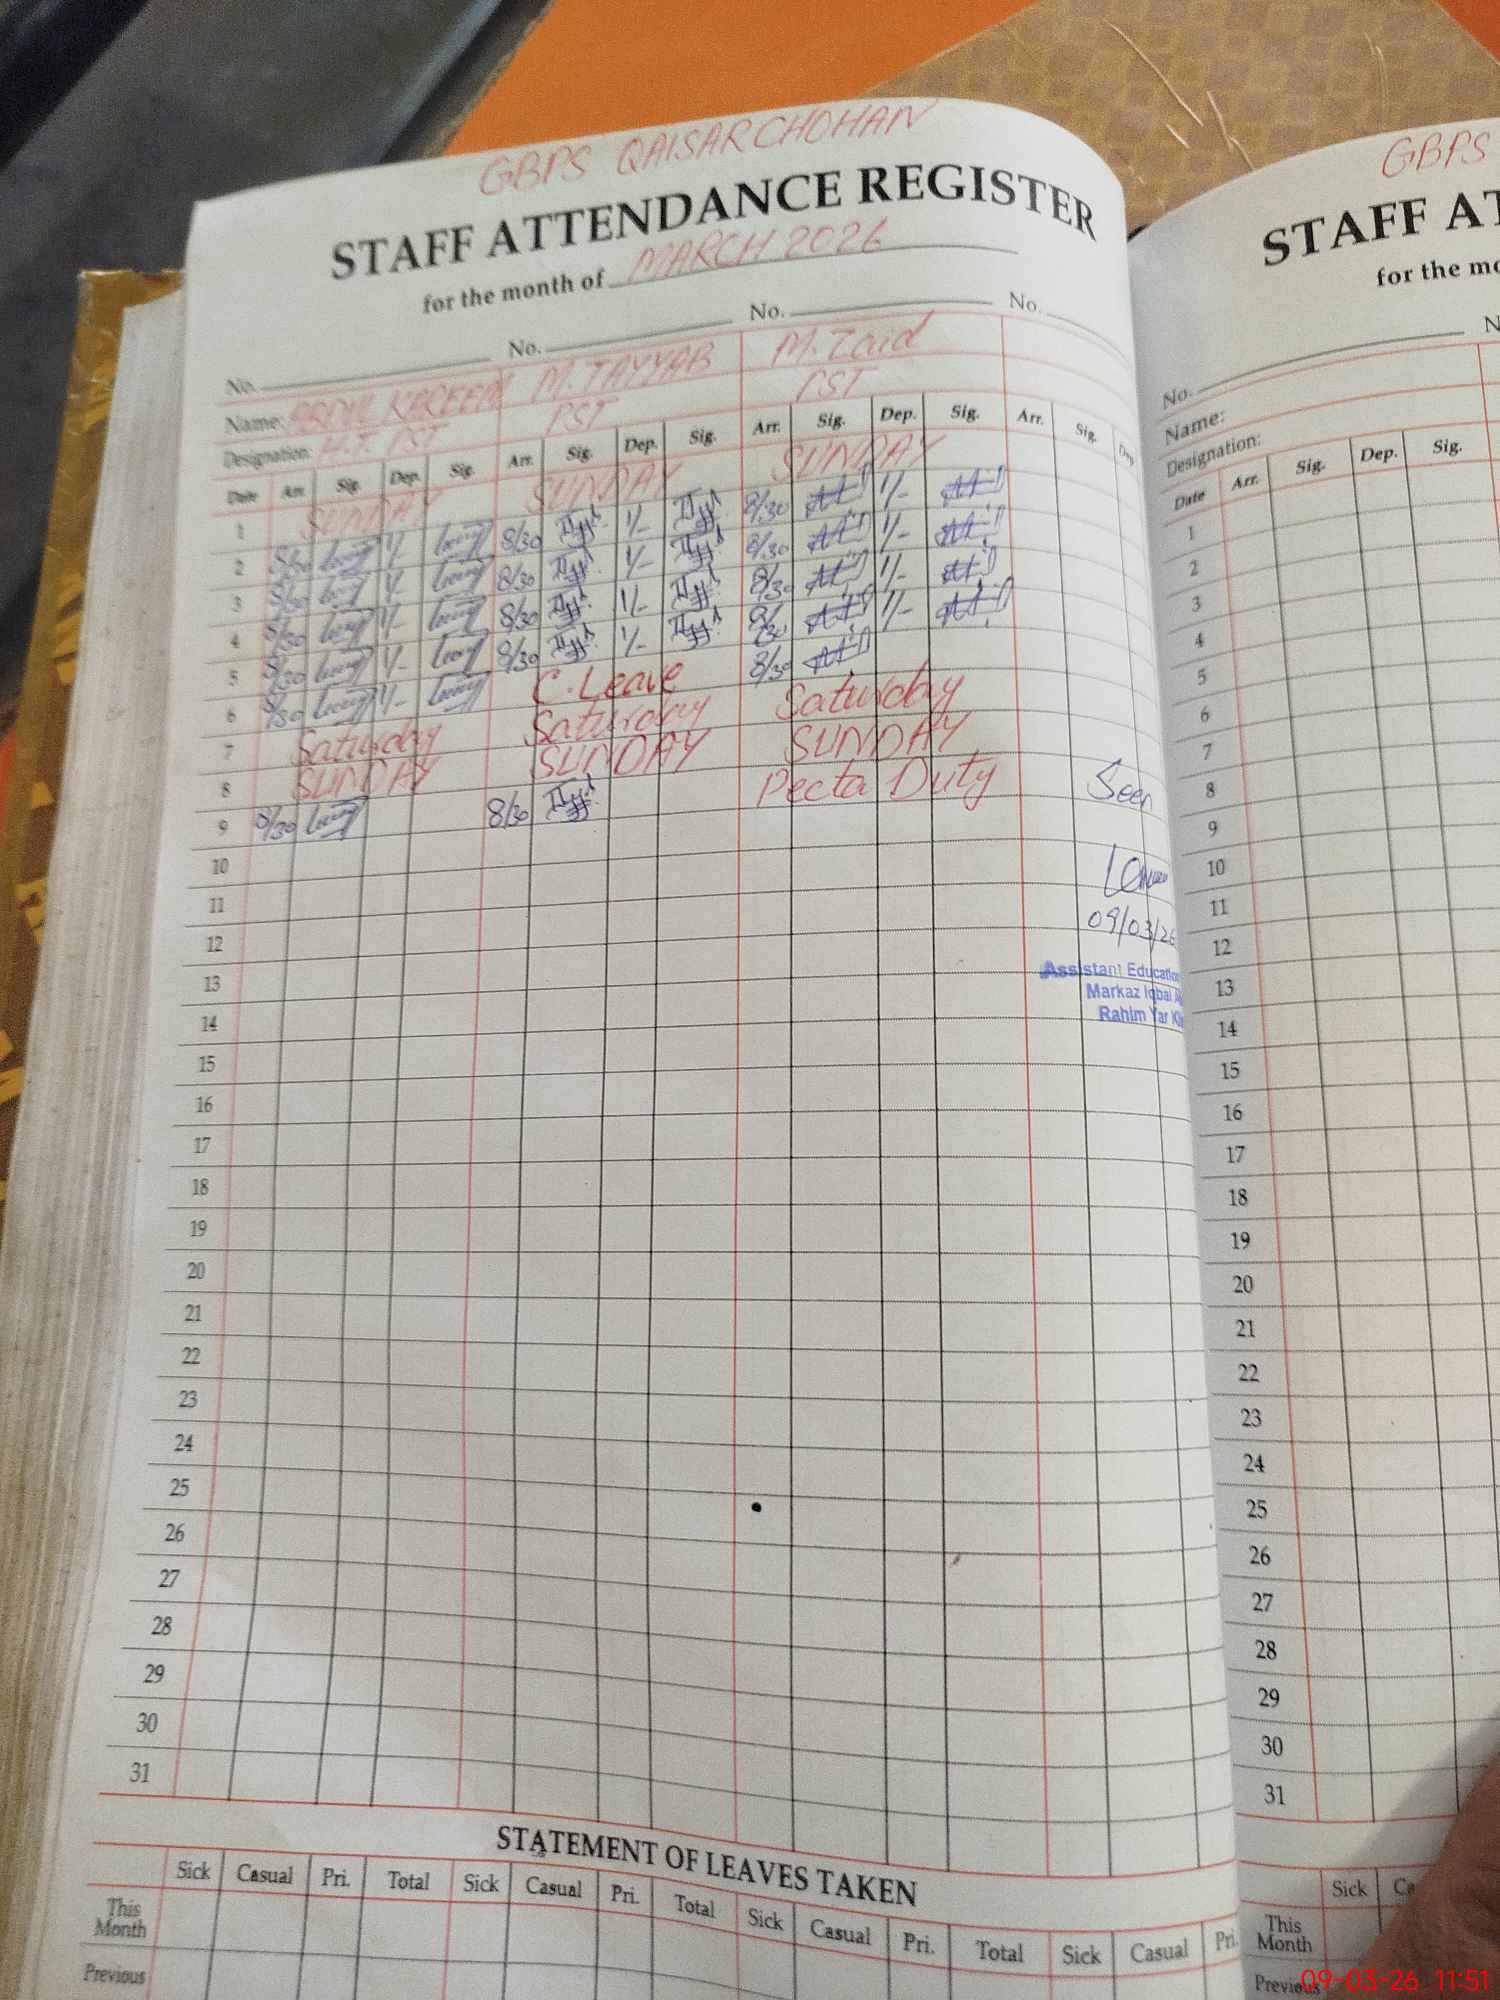 GBPS QAISAR CHOHAN
STAFF ATTENDANCE REGISTER
for the month of MARCH 2026
No. No. No. No.
Name: ABDUL KAREEM M. TAYYAB M. Zaid
Designation: H.T. PST PST PST
Date Arr. Sig. Dep. Sig. Arr. Sig. Dep. Sig. Arr. Sig. Dep. Sig. Arr. Sig. Dep
1 SUNDAY SUNDAY SUNDAY
2 8/30 1/- 8/30 1/- 8/30 1/-
3 8/30 1/- 8/30 1/- 8/30 1/-
4 8/30 1/- 8/30 1/- 8/30 1/-
5 8/30 1/- 8/30 1/- 8/30 1/-
6 8/30 1/- C. Leave 8/30
7 Saturday Saturday Saturday
8 SUNDAY SUNDAY SUNDAY
9 8/30 8/30 Pecta Duty Seen
10
11
12 09/03/26
13 Assistant Education
Markaz Iqbal
14 Rahim Yar
15
16
17
18
19
20
21
22
23
24
25
26
27
28
29
30
31
STATEMENT OF LEAVES TAKEN
Sick Casual Pri. Total Sick Casual Pri. Total Sick Casual Pri. Total Sick Casual Pri.
This Month
Previous
GBPS
STAFF AT
for the mo
No.
Name:
Designation:
Date Arr. Sig. Dep. Sig.
1
2
3
4
5
6
7
8
9
10
11
12
13
14
15
16
17
18
19
20
21
22
23
24
25
26
27
28
29
30
31
Sick Ca
This Month
Previous
09-03-26 11:51